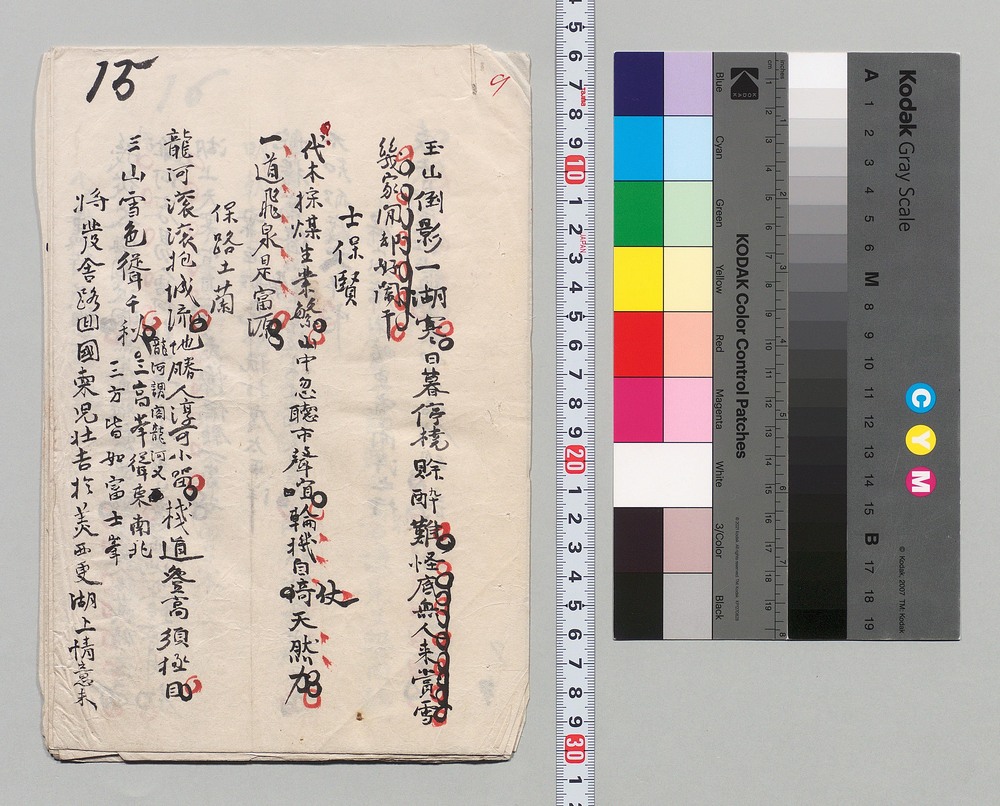 15
9
玉山倒影一湖寒日暮停橈賖酔難怪底無人来賞雪
幾家閑却好闌干
士保賢
代木採煤生業繁山中忽聴市聲宜輪機自倚天然力
仗
一道飛泉是富源
保路士蘭
龍河滾滾抱城流地勝人淳可小留桟道登高須極目
龍河謂閣龍河又
三山雪色聳千秋
三高峯聳東南北
三方皆如富士峯
將發舎路回國東児壮吉於美西更湖上情意未
4 5 6 7 8 9 10 1 2 3 4 5 6 7 8 9 20 1 2 3 4 5 6 7 8 9 30 1 2
JAPAN
Kodak
KODAK Color Control Patches
Blue
Cyan
Green
Yellow
Red
Magenta
White
3/Color
Black
inches
cm
1 2 3 4 5 6 7 8 9 10 11 12 13 14 15 16 17 18 19
Kodak Gray Scale
A 1 2 3 4 5 6 M 8 9 10 11 12 13 14 15 B 17 18 19
C Y M
© Kodak, 2007 TM: Kodak